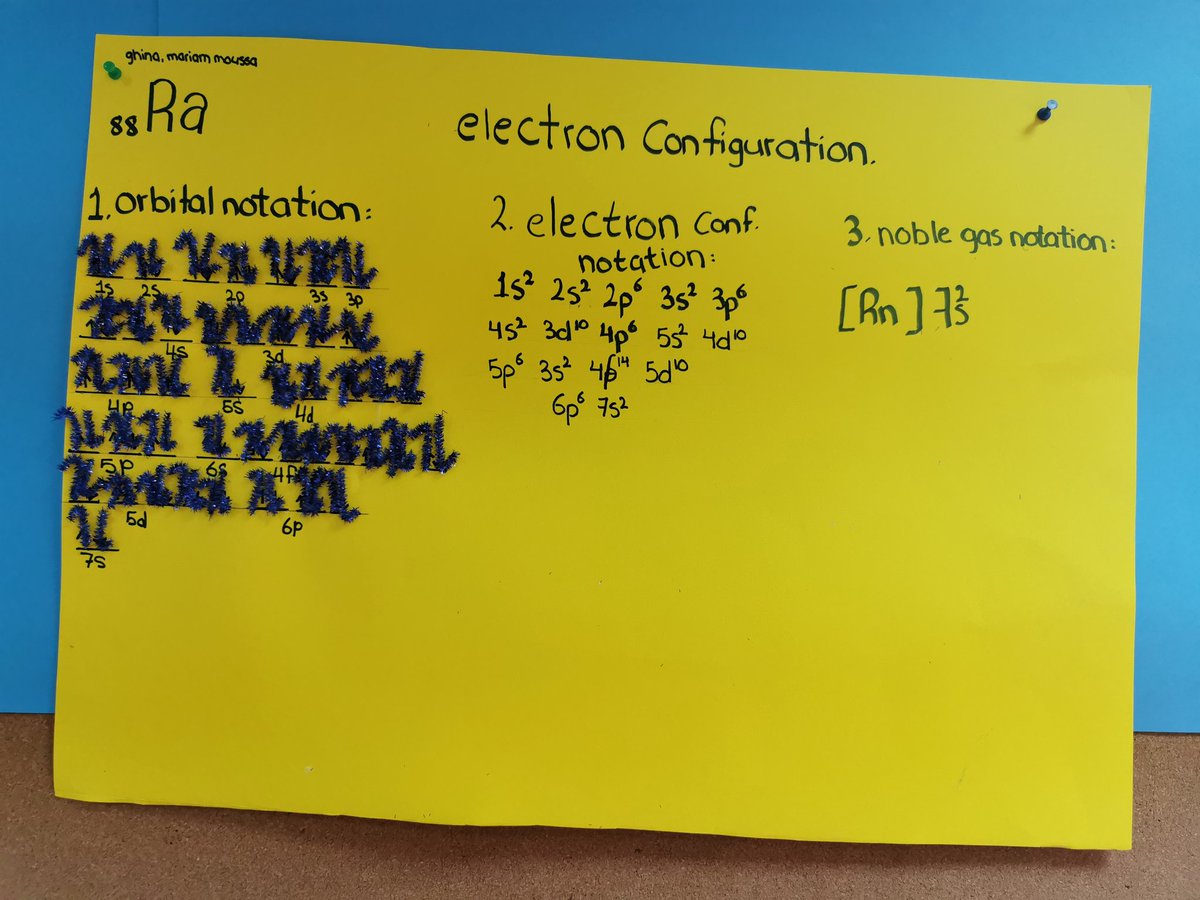 ghina, mariam moussa
88Ra
electron Configuration.
1. orbital notation:
1s 2s 2p 3s 3p
4s 3d
4p 5s 4d
5p 6s 4f
5d 6p
7s
2. electron conf.
notation:
1s² 2s² 2p⁶ 3s² 3p⁶
4s² 3d¹⁰ 4p⁶ 5s² 4d¹⁰
5p⁶ 3s² 4p¹⁴ 5d¹⁰
6p⁶ 7s²
3. noble gas notation:
[Rn] 7s²